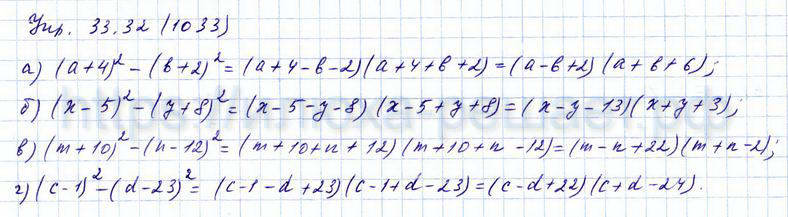 Упр. 33.32 (1033)
а) (a+4)² - (b+2)² = (a+4-b-2)(a+4+b+2) = (a-b+2)(a+b+6);
б) (x-5)² - (y+8)² = (x-5-y-8)(x-5+y+8) = (x-y-13)(x+y+3);
в) (m+10)² - (n-12)² = (m+10+n+12)(m+10+n-12) = (m-n+22)(m+n-2);
г) (c-1)² - (d-23)² = (c-1-d+23)(c-1+d-23) = (c-d+22)(c+d-24).